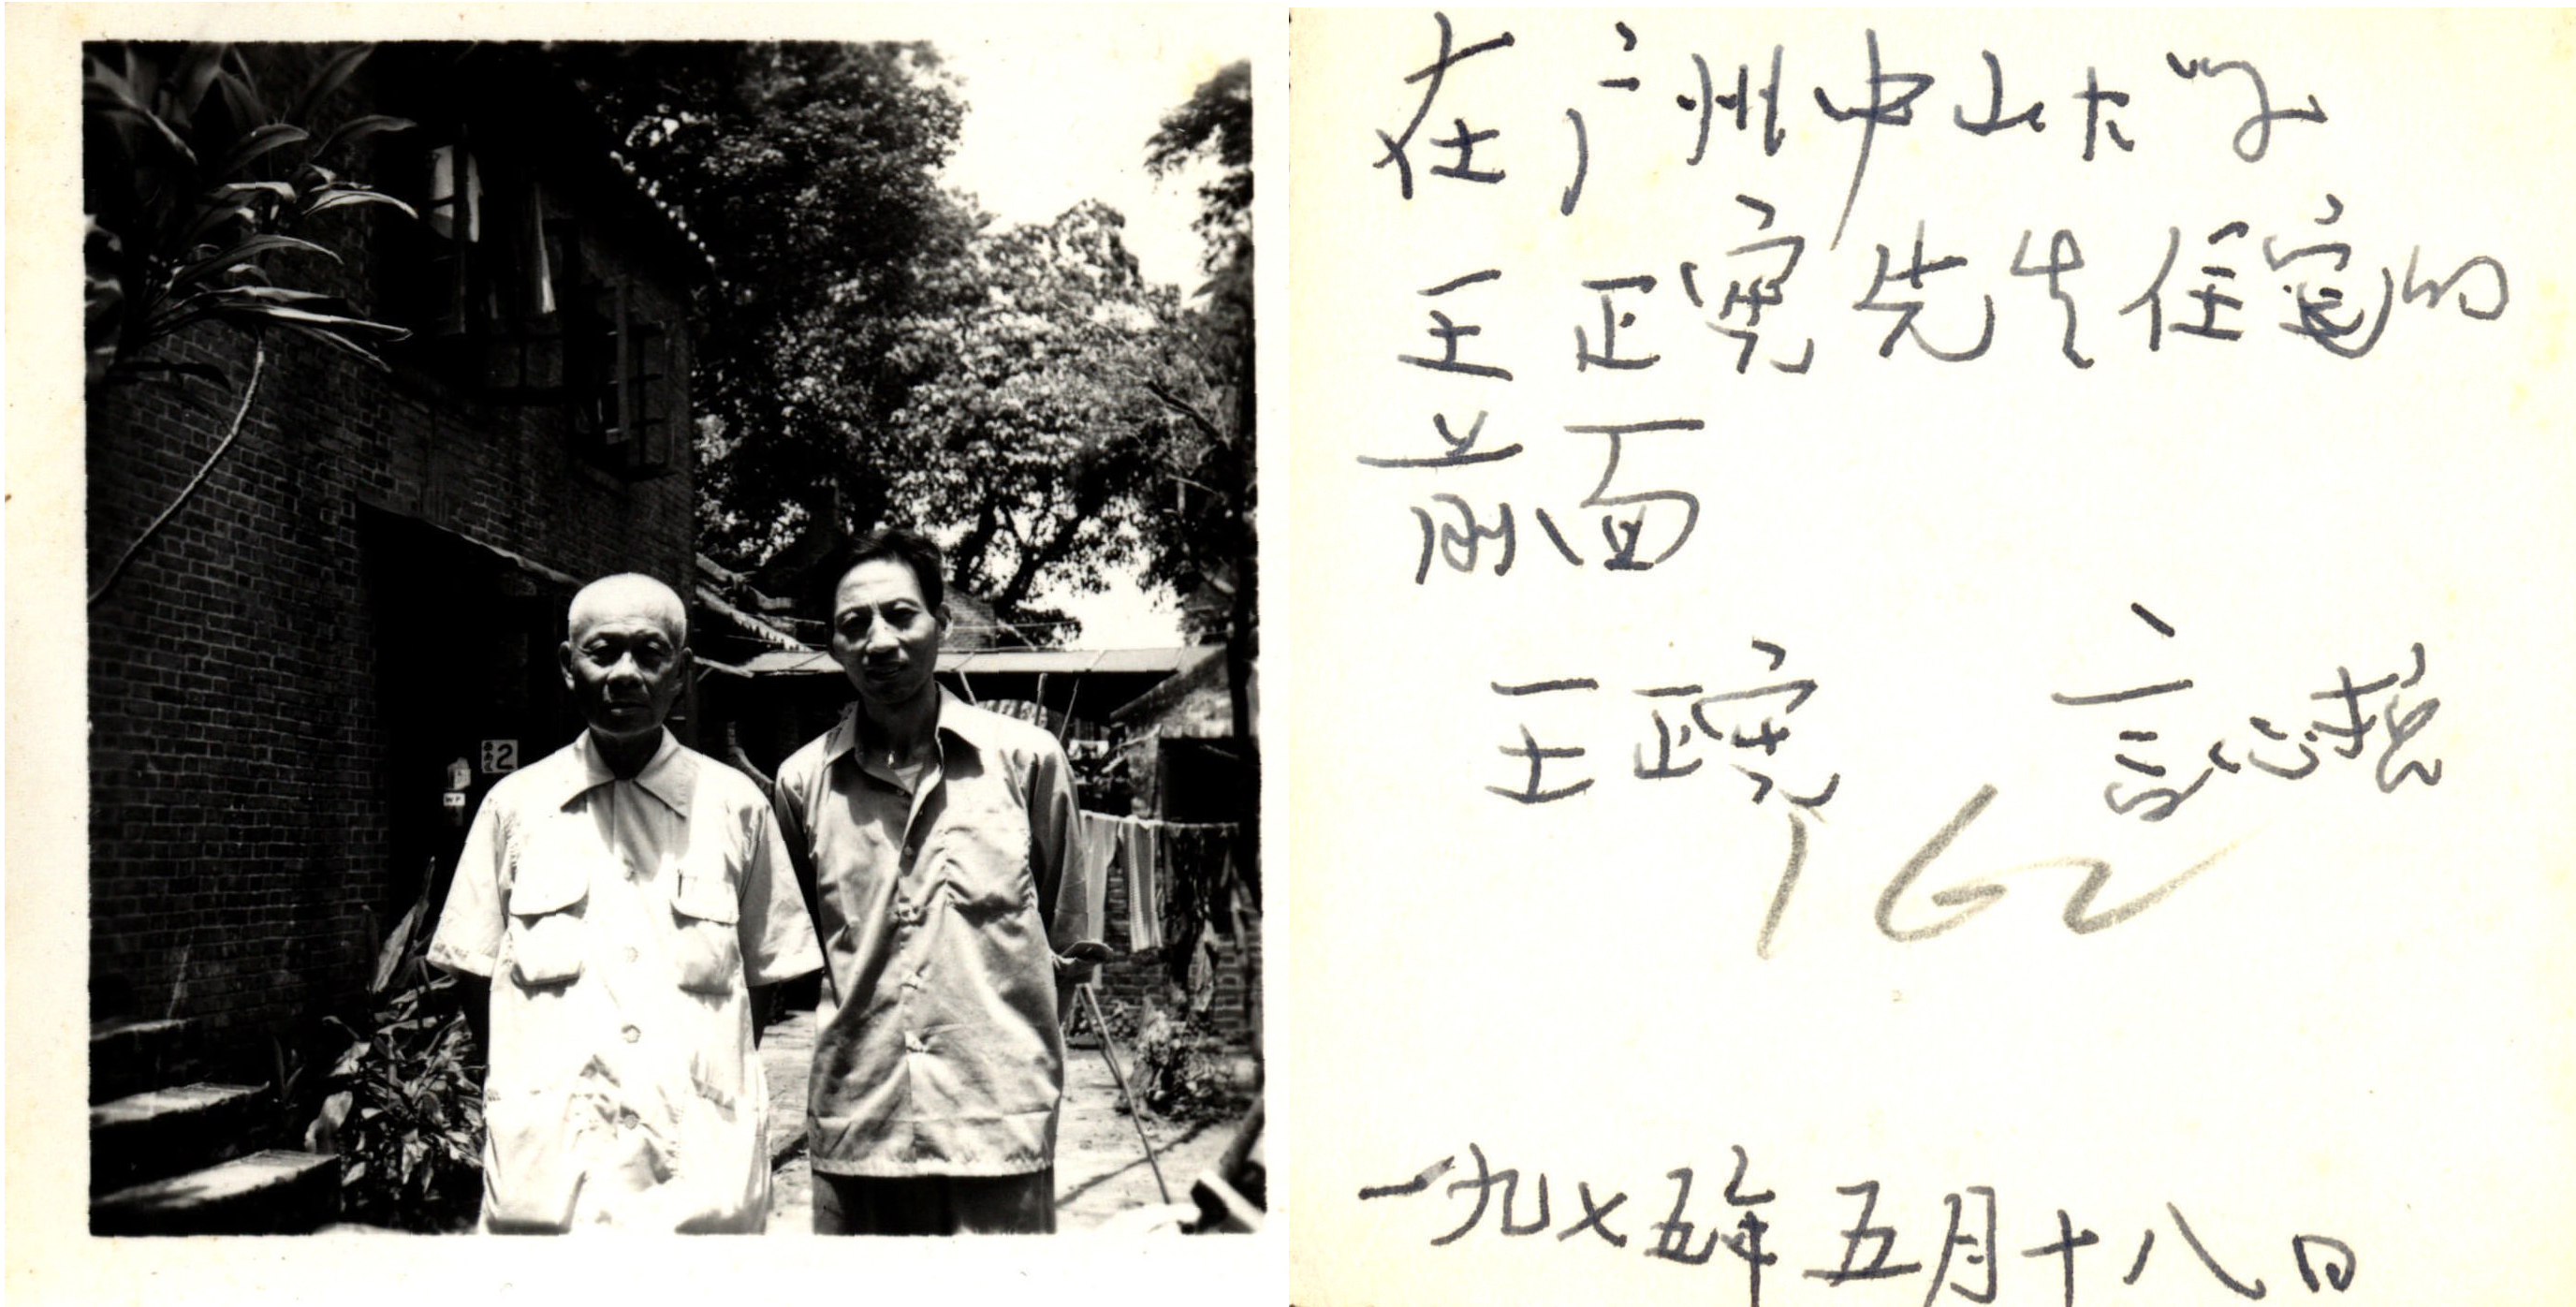 2
在广州中山大学
王正宪先生住宅的
前面
王正宪 言心哲
162
一九七五年五月十八日